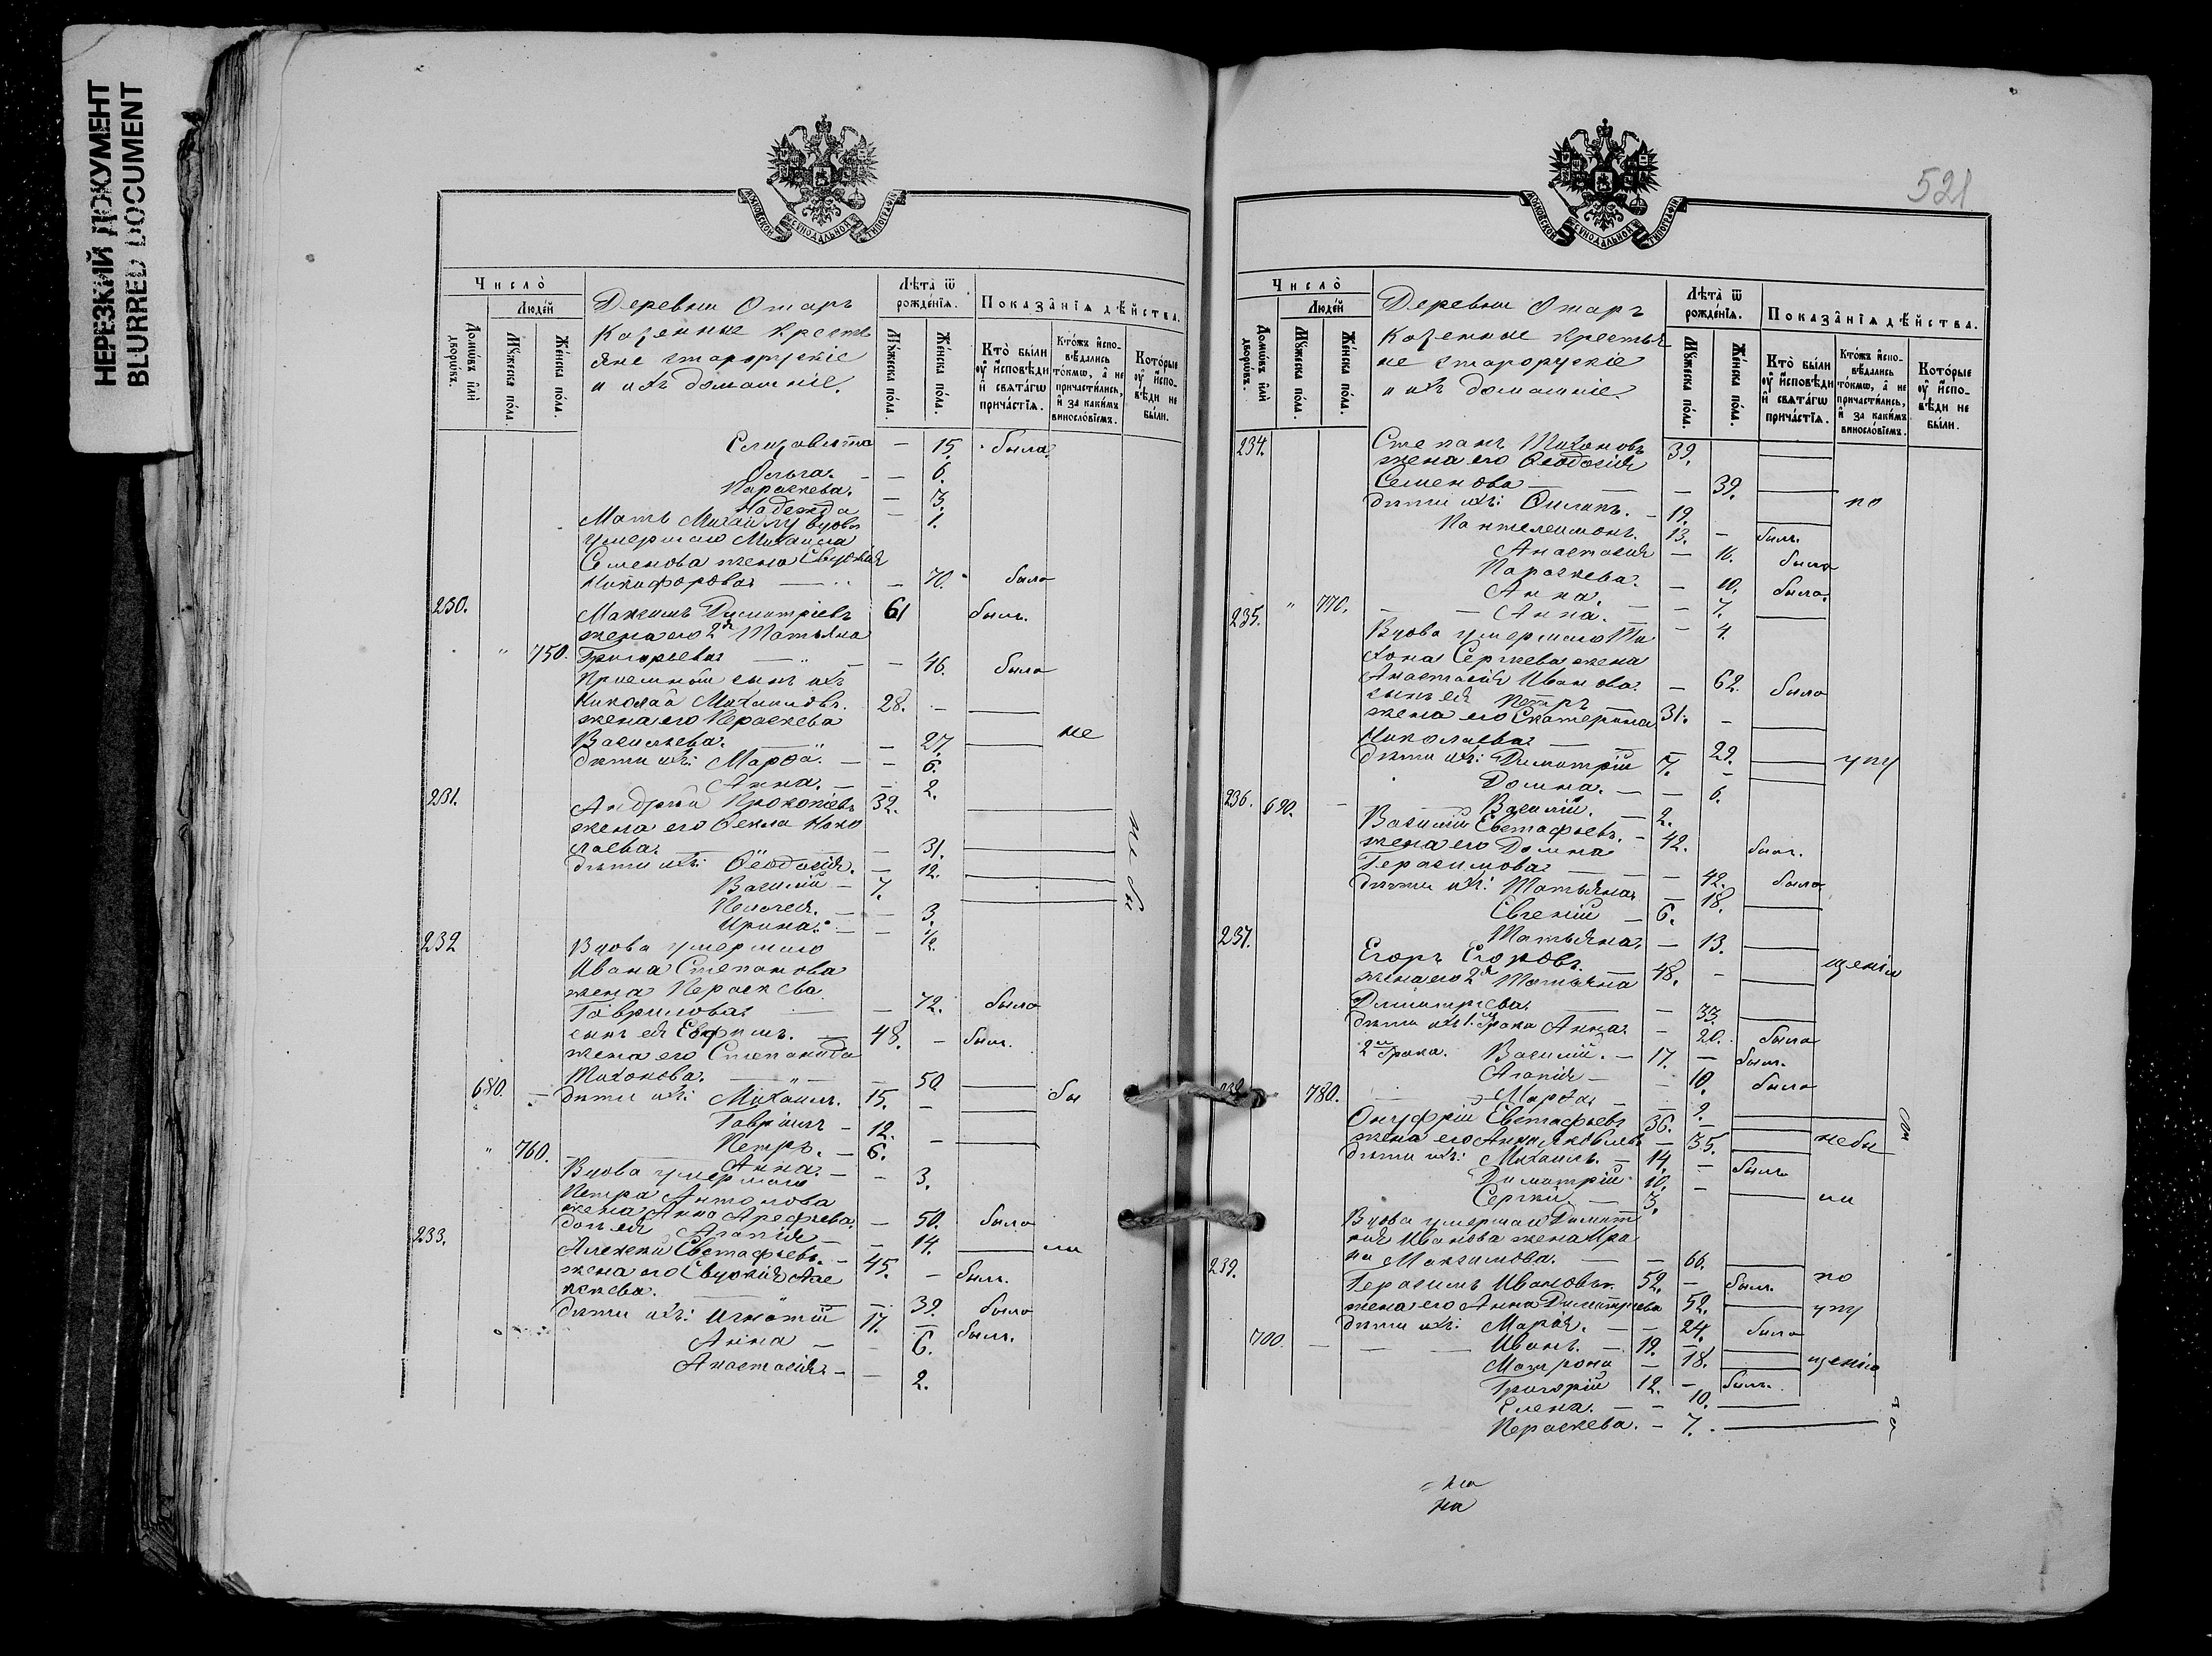 НЕРЕЗКИЙ ДОКУМЕНТ
BLURRED DOCUMENT
МОСКОВСКОЙ СѴНОДАЛЬНОЙ ТИПОГРАФІИ
Число̀
Люде́й
Домѡ́въ и҆лѝ дворѡ́въ.
Мꙋ́жеска по́ла.
Же́нска по́ла.
Деревни Отаръ
Казенные крестъ
яне старорускіе
и ихъ домашніе.
Лѣ́та ѿ рожде́нїѧ.
Мꙋ́жеска по́ла.
Же́нска по́ла.
Показа̑нїѧ дѣ́йства.
Кто̀ бы́ли ᲂу҆ и҆сповѣ́ди и҆ свѧта́гѡ прича́стїѧ.
Кто́жъ и҆сповѣ́дались то́кмѡ, а҆ не причасти́лись, и҆ за каки́мъ виносло́вїемъ.
Кото́рые ᲂу҆ и҆сповѣ́ди не бы́ли.
Елизавета — 15. была
Ольга. — 6.
Параскева. — 3.
Надежда — 1.
Мать Михаилу вдова
умершаго Михаила
Семенова жена Евдокія
Никифорова — 70. была
230. Максимъ Димитріевъ 61 былъ.
жена его 2я Татьяна
" 750. Григорьева — 46. была
Пріемный сынъ ихъ
Николай Михаиловъ. 28. —
жена его Параскева
Васильева. — 27. не
дѣти ихъ: Марѳа. — 6.
Анна. — 2.
231. Андрей Прокопіевъ 32.
жена его Ѳекла Нико
лаева. — 31. не бы
дѣти ихъ: Ѳеодосія. — 12.
Василій — 7.
Пелагея. — 3.
Ирина. — 1/2
232 Вдова умершаго
Ивана Степанова
жена Параскева
Гаврилова — 72. была
сынъ ея Евфимъ. — 48. — былъ.
жена его Степанида
Тихонова. — 50.
680. — дѣти ихъ: Михаилъ. 15. — бы
Гавріилъ — 12.
Петръ. — 6.
" 760. Анна. — 3.
Вдова умершаго
Петра Антонова
жена Анна Арефьева. — 50. была
дочь ея Агапія — 14. ли
233. Алексей Евстафьевъ. — 45. — былъ.
жена его Евдокія Але
ксеева. — 39. была
дѣти ихъ: Игнатій 17. — былъ.
Анна — 6.
Анастасія. — 2.
521
МОСКОВСКОЙ СѴНОДАЛЬНОЙ ТИПОГРАФІИ
Число̀
Люде́й
Домѡ́въ и҆лѝ дворѡ́въ.
Мꙋ́жеска по́ла.
Же́нска по́ла.
Деревни Отаръ
Казенные крестья
не старорускіе
и ихъ домашніе.
Лѣ́та ѿ рожде́нїѧ.
Мꙋ́жеска по́ла.
Же́нска по́ла.
Показа̑нїѧ дѣ́йства.
Кто̀ бы́ли ᲂу҆ и҆сповѣ́ди и҆ свѧта́гѡ прича́стїѧ.
Кто́жъ и҆сповѣ́дались то́кмѡ, а҆ не причасти́лись, и҆ за каки́мъ виносло́вїемъ.
Кото́рые ᲂу҆ и҆сповѣ́ди не бы́ли.
234. Степанъ Тихоновъ 39.
жена его Ѳеодосія
Семенова — 39. по
дѣти ихъ: Филипъ. — 19.
Пантелеимонъ. 13. — былъ.
Анастасія — 16. была
Параскева. — 10. была.
Анна. — 7.
" 770. Анна. — 4.
235. Вдова умершаго Ти
хона Сергеева жена
Анастасія Иванова. — 62. была
сынъ ея Петръ 31. —
жена его Екатерина
Николаева — 29. упу
дѣти ихъ: Димитрій 7. —
Домна. — 6.
690. — Василій. — 2.
236. Василій Евстафьевъ. — 42. былъ.
жена его Домна
Герасимова — 42. была
дѣти ихъ: Татьяна — 18.
Евгеній — 6.
Татьяна — 13.
237. Егоръ Егоровъ. 48. — щенію
жена его 2я Татьяна
Димитріева. — 33.
дѣти ихъ 1го брака Анна. — 20. была
2го брака. Василій. — 17. — былъ.
Агапія — 10. была
780. Марѳа — 2.
238. Онуфрій Евстафьевъ 36. —
жена его Анна Яковлева — 35. небы
дѣти ихъ: Михаилъ. — 14. — былъ
Димитрій 10. —
Сергей. — 3. ли
Вдова умершаго Димит
рія Иванова жена Ири
на Максимова. — 66.
239. Герасимъ Ивановъ. 52. — былъ. по
жена его Анна Димитріева 52. упу
дѣти ихъ: Марія. — 24. была
700. Иванъ. — 19. —
Матрона — 18. щенію
Григорій 12. — былъ.
Елена. — 10.
Параскева. — 7.
на